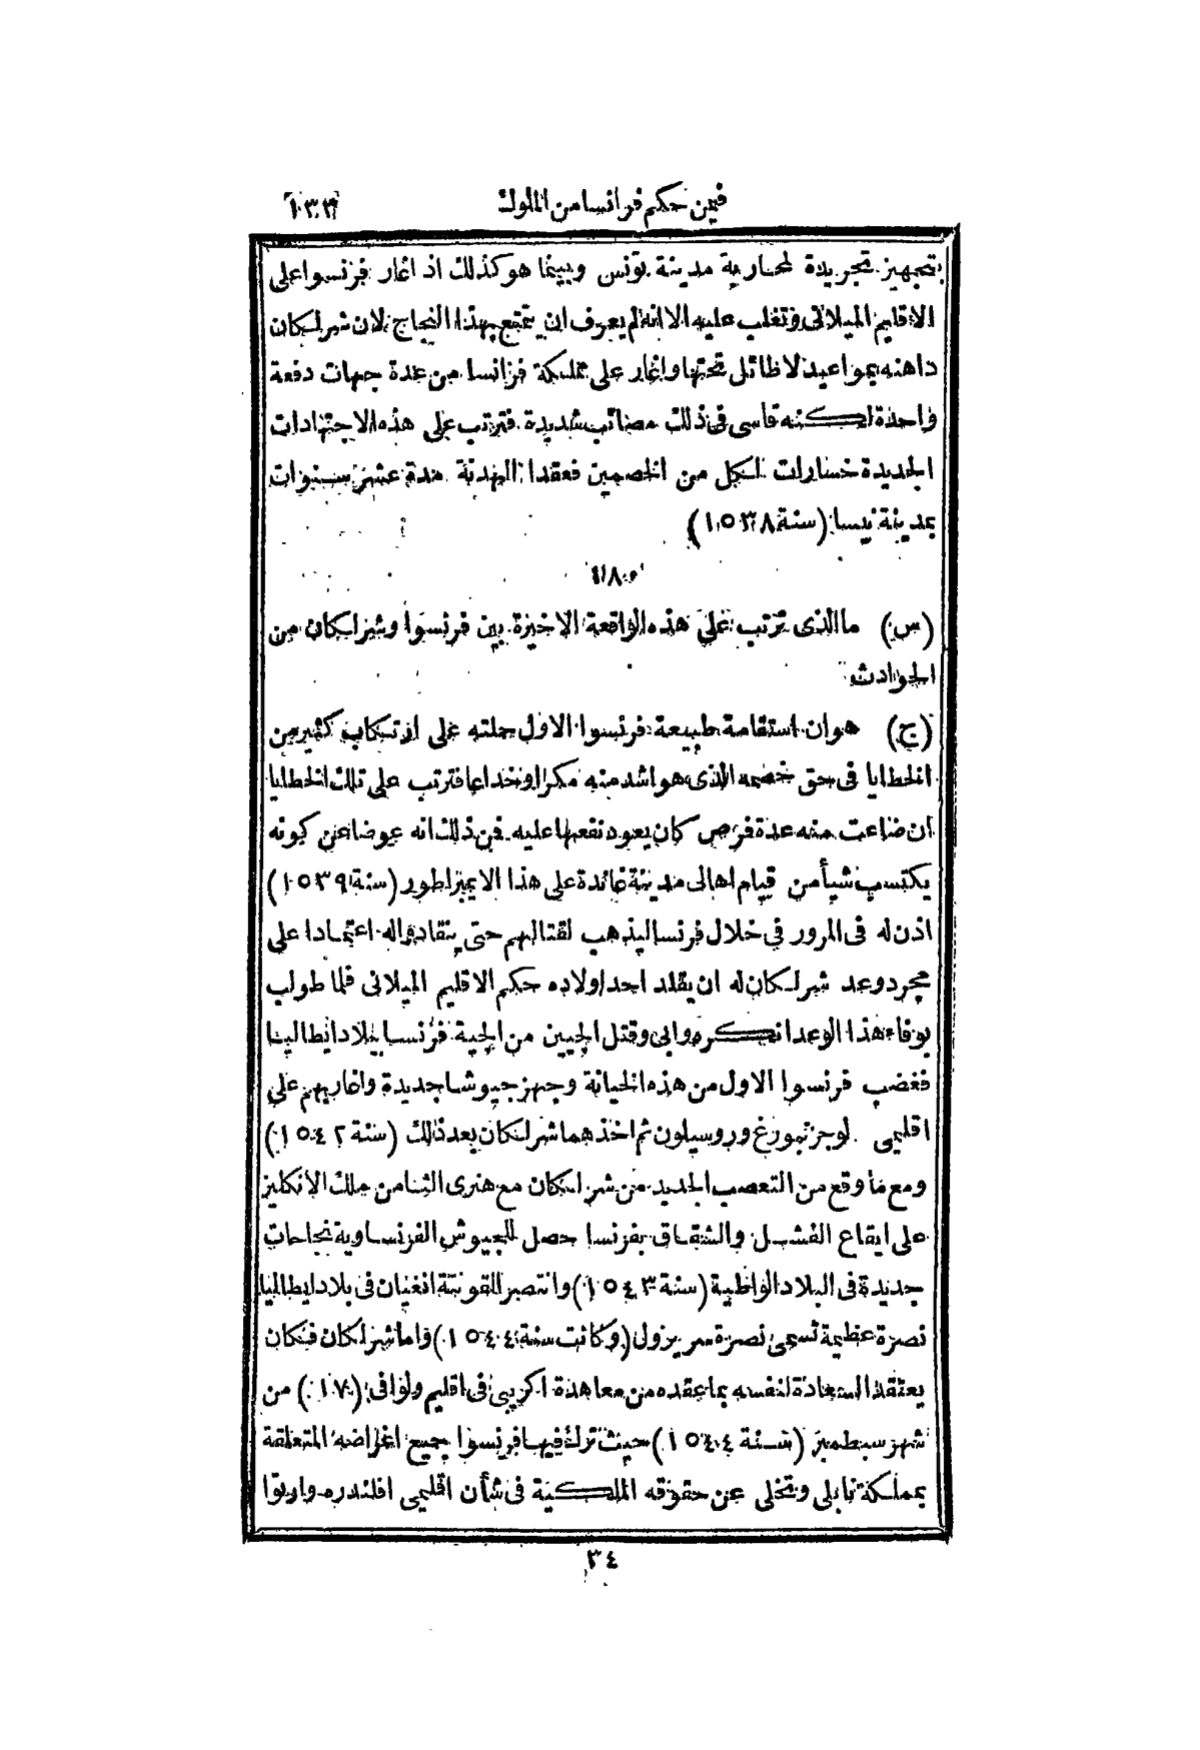 فيمن حكم فرانسا من الملوك ١٣٣
بتجهيز تجريدة لمحاربة مدينة تونس وبينما هو كذلك اذ اغار فرنسوا على
الاقليم الميلانى وتغلب عليه الا انه لم يعرف ان يتمتع بهذا النجاح لان شرلكان
داهنه بمواعيد لا طائل تحتها واغار على مملكة فرانسا من عدة جهات دفعة
واحدة لكنه قاسى فى ذلك مصائب شديدة فترتب على هذه الاجتهادات
الجديدة خسارات لكل من الخصمين فعقدا الهدنة مدة عشر سنوات
بمدينة نيسا (سنة ١٥٣٨)
(س) ما الذى ترتب على هذه الواقعة الاخيرة بين فرنسوا وشرلكان من
الحوادث
(ج) هو ان استقامة طبيعة فرنسوا الاول حملته على ارتكاب كثير من
الخطايا فى حق خصمه الذى هو اشد منه مكرا وخداعا فترتب على تلك الخطايا
ان ضاعت منه عدة فرص كان يعود نفعها عليه فمن ذلك انه عوضا عن كونه
يكتسب شيأ من قيام اهالى مدينة غائدة على هذا الايمبراطور (سنة ١٥٣٩)
اذن له فى المرور فى خلال فرنسا ليذهب لقتالهم حتى ينقادوا له اعتمادا على
مجرد وعد شرلكان له ان يقلد احد اولاده حكم الاقليم الميلانى فلما طولب
بوفاء هذا الوعد انكره وابى وقتل الجيين من الجية فرنسا ببلاد ايطاليا
فغضب فرنسوا الاول من هذه الخيانة وجهز جيوشا جديدة واغار بهم على
اقليمى لوجزنبورغ وروسيلون ثم اخذهما شرلكان بعد ذلك (سنة ١٥٤٢)
ومع ما وقع من التعصب الجديد من شرلكان مع هنرى الثامن ملك الانكليز
على ايقاع الفشل والشقاق بفرنسا حصل للجيوش الفرنساوية نجاحات
جديدة فى البلاد الواطية (سنة ١٥٤٣) وانتصر القونتة انغيان فى بلاد ايطاليا
نصرة عظيمة تسمى نصرة سريزول (وكانت سنة ١٥٤٤) واما شرلكان فكان
يعتقد السعادة لنفسه بما عقده من معاهدة اكريپى فى اقليم ولوافى (١٧) من
شهر سبطمبر (سنة ١٥٤٤) حيث ترك فيها فرنسوا جميع اغراضه المتعلقة
بمملكة نابلى وتخلى عن حقوقه الملكية فى شأن اقليمى افلندره وارتوا
٣٤